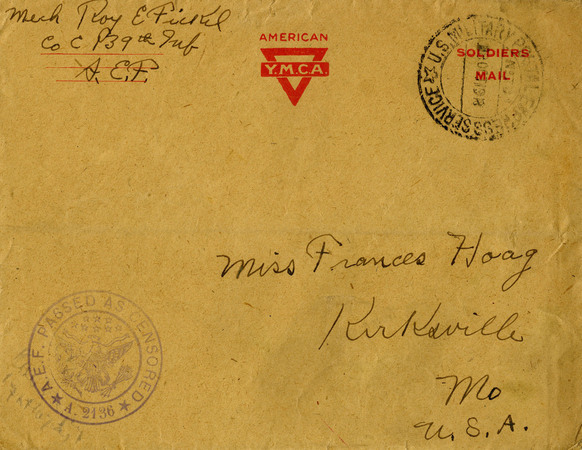 Mech Roy E Fickel
Co C 139th Inf
A.E.F.
AMERICAN
Y.M.C.A.
SOLDIERS
MAIL
U.S. MILITARY POSTAL EXPRESS SERVICE
Miss Frances Hoag
Kirksville
Mo
U.S.A.
A.E.F. PASSED AS CENSORED
A. 2136